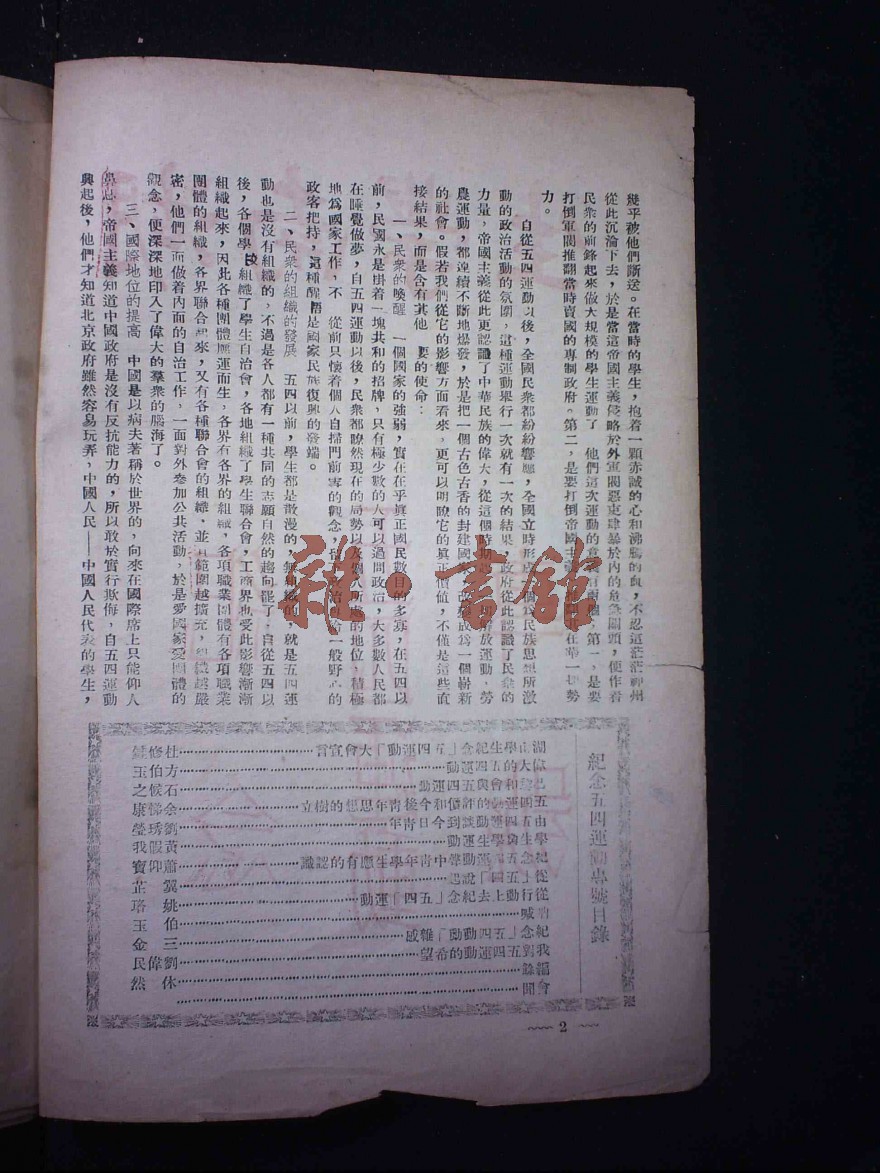 幾乎被他們斷送。在當時的學生，抱着一顆赤誠的心和沸騰的血，不忍這茫茫神州
從此沉淪下去，於是當這帝國主義侵略於外軍閥惡吏肆暴於內的危急關頭，便作着
民衆的前鋒起來做大規模的學生運動了 他們這次運動的意 有兩個 第一，是要
打倒軍閥推翻當時賣國的專制政府。第二，是要打倒帝國主 在華一切勢
力。
自從五四運動以後，全國民衆都紛紛響應，全國立時形成 個爲民族思想所激
動的政治活動的氛圍，這種運動舉行一次就有一次的結果，政府從此認識了民衆的
力量，帝國主義從此更認識了中華民族的偉大，從這個時期 解放運動，勞
農運動，都連續不斷地爆發，於是把一個古色古香的封建國 改 成爲一個嶄新
的社會。假若我們從它的影響方面看來，更可以明瞭它的眞正價値，不僅是這些直
接結果，而是含有其他 要的使命：
一、民衆的喚醒 一個國家的強弱，實在在乎眞正國民數目的多寡，在五四以
前，民國永是掛着一塊共和的招牌，只有極少數的人可以過問政治，大多數人民都
在睡覺做夢，自五四運動以後，民衆都瞭然現在的局勢以及個人所處的地位，積極
地爲國家工作，不 從前只懷着個人自掃門前雪的觀念， 政治 給一般野心的
政客把持，這種醒悟是國家民族復興的發端。
二、民衆的組織的發展 五四以前，學生都是散漫的，無組織的，就是五四運
動也是沒有組織的，不過是各人都有一種共同的志願自然的趨向罷了，自從五四以
後，各個學校組織了學生自治會，各地組織了學生聯合會，工商界也受此影響漸漸
組織起來，因此各種團體應運而生，各界有各界的組織，各項職業團體有各項職業
團體的組織，各界聯合起來，又有各種聯合會的組織，並且範圍越擴充，組織越嚴
密，他們一面做着內面的自治工作，一面對外參加公共活動，於是愛國家愛團體的
觀念，便深深地印入了偉大的羣衆的腦海了。
三、國際地位的提高 中國是以病夫著稱於世界的，向來在國際席上只能仰人
鼻息，帝國主義知道中國政府是沒有反抗能力的，所以敢於實行欺侮，自五四運動
興起後，他們才知道北京政府雖然容易玩弄，中國人民——中國人民代表的學生，
紀念五四運動專號目錄
湖山學生紀念「五四運動」大會宣言 杜修
偉大的五四運動 方伯玉
巴黎和會與五四運動 石候之
五四運動的評價和今後青年思想的樹立 余 康
由五四談到今日青年 劉琇瑩
學生與學生運動 黃假我
紀念五四運動聲中青年學生應有的認識 蕭仰寶
從「五四」說起 翼 芷
從行動上去紀念「五四」運動 姚 珞
吶喊 伯玉
紀念「五四動動」雜感 三金
我對五四運動的希望 劉偉民
編餘 休然
會聞
2
雜·書館